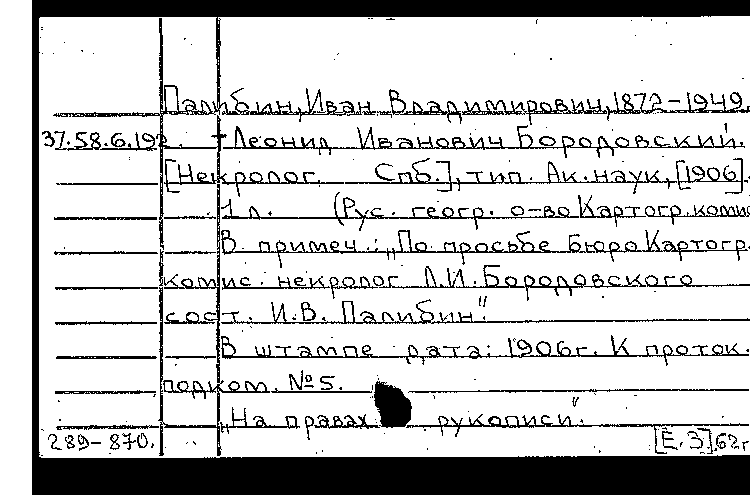 Палибин, Иван Владимирович, 1872-1949.
37.58.6.192 †Леонид Иванович Бородовский.
[Некролог. Спб.], тип. Ак. наук, [1906].
1 л. (Рус. геогр. о-во Картогр. комис
В примеч.: „По просьбе бюро Картогр.
комис. некролог Л.И. Бородовского
сост. И.В. Палибин".
В штампе дата: 1906г. К проток.
подком. №5.
„На правах рукописи".
289-870. [Е.З] 62г